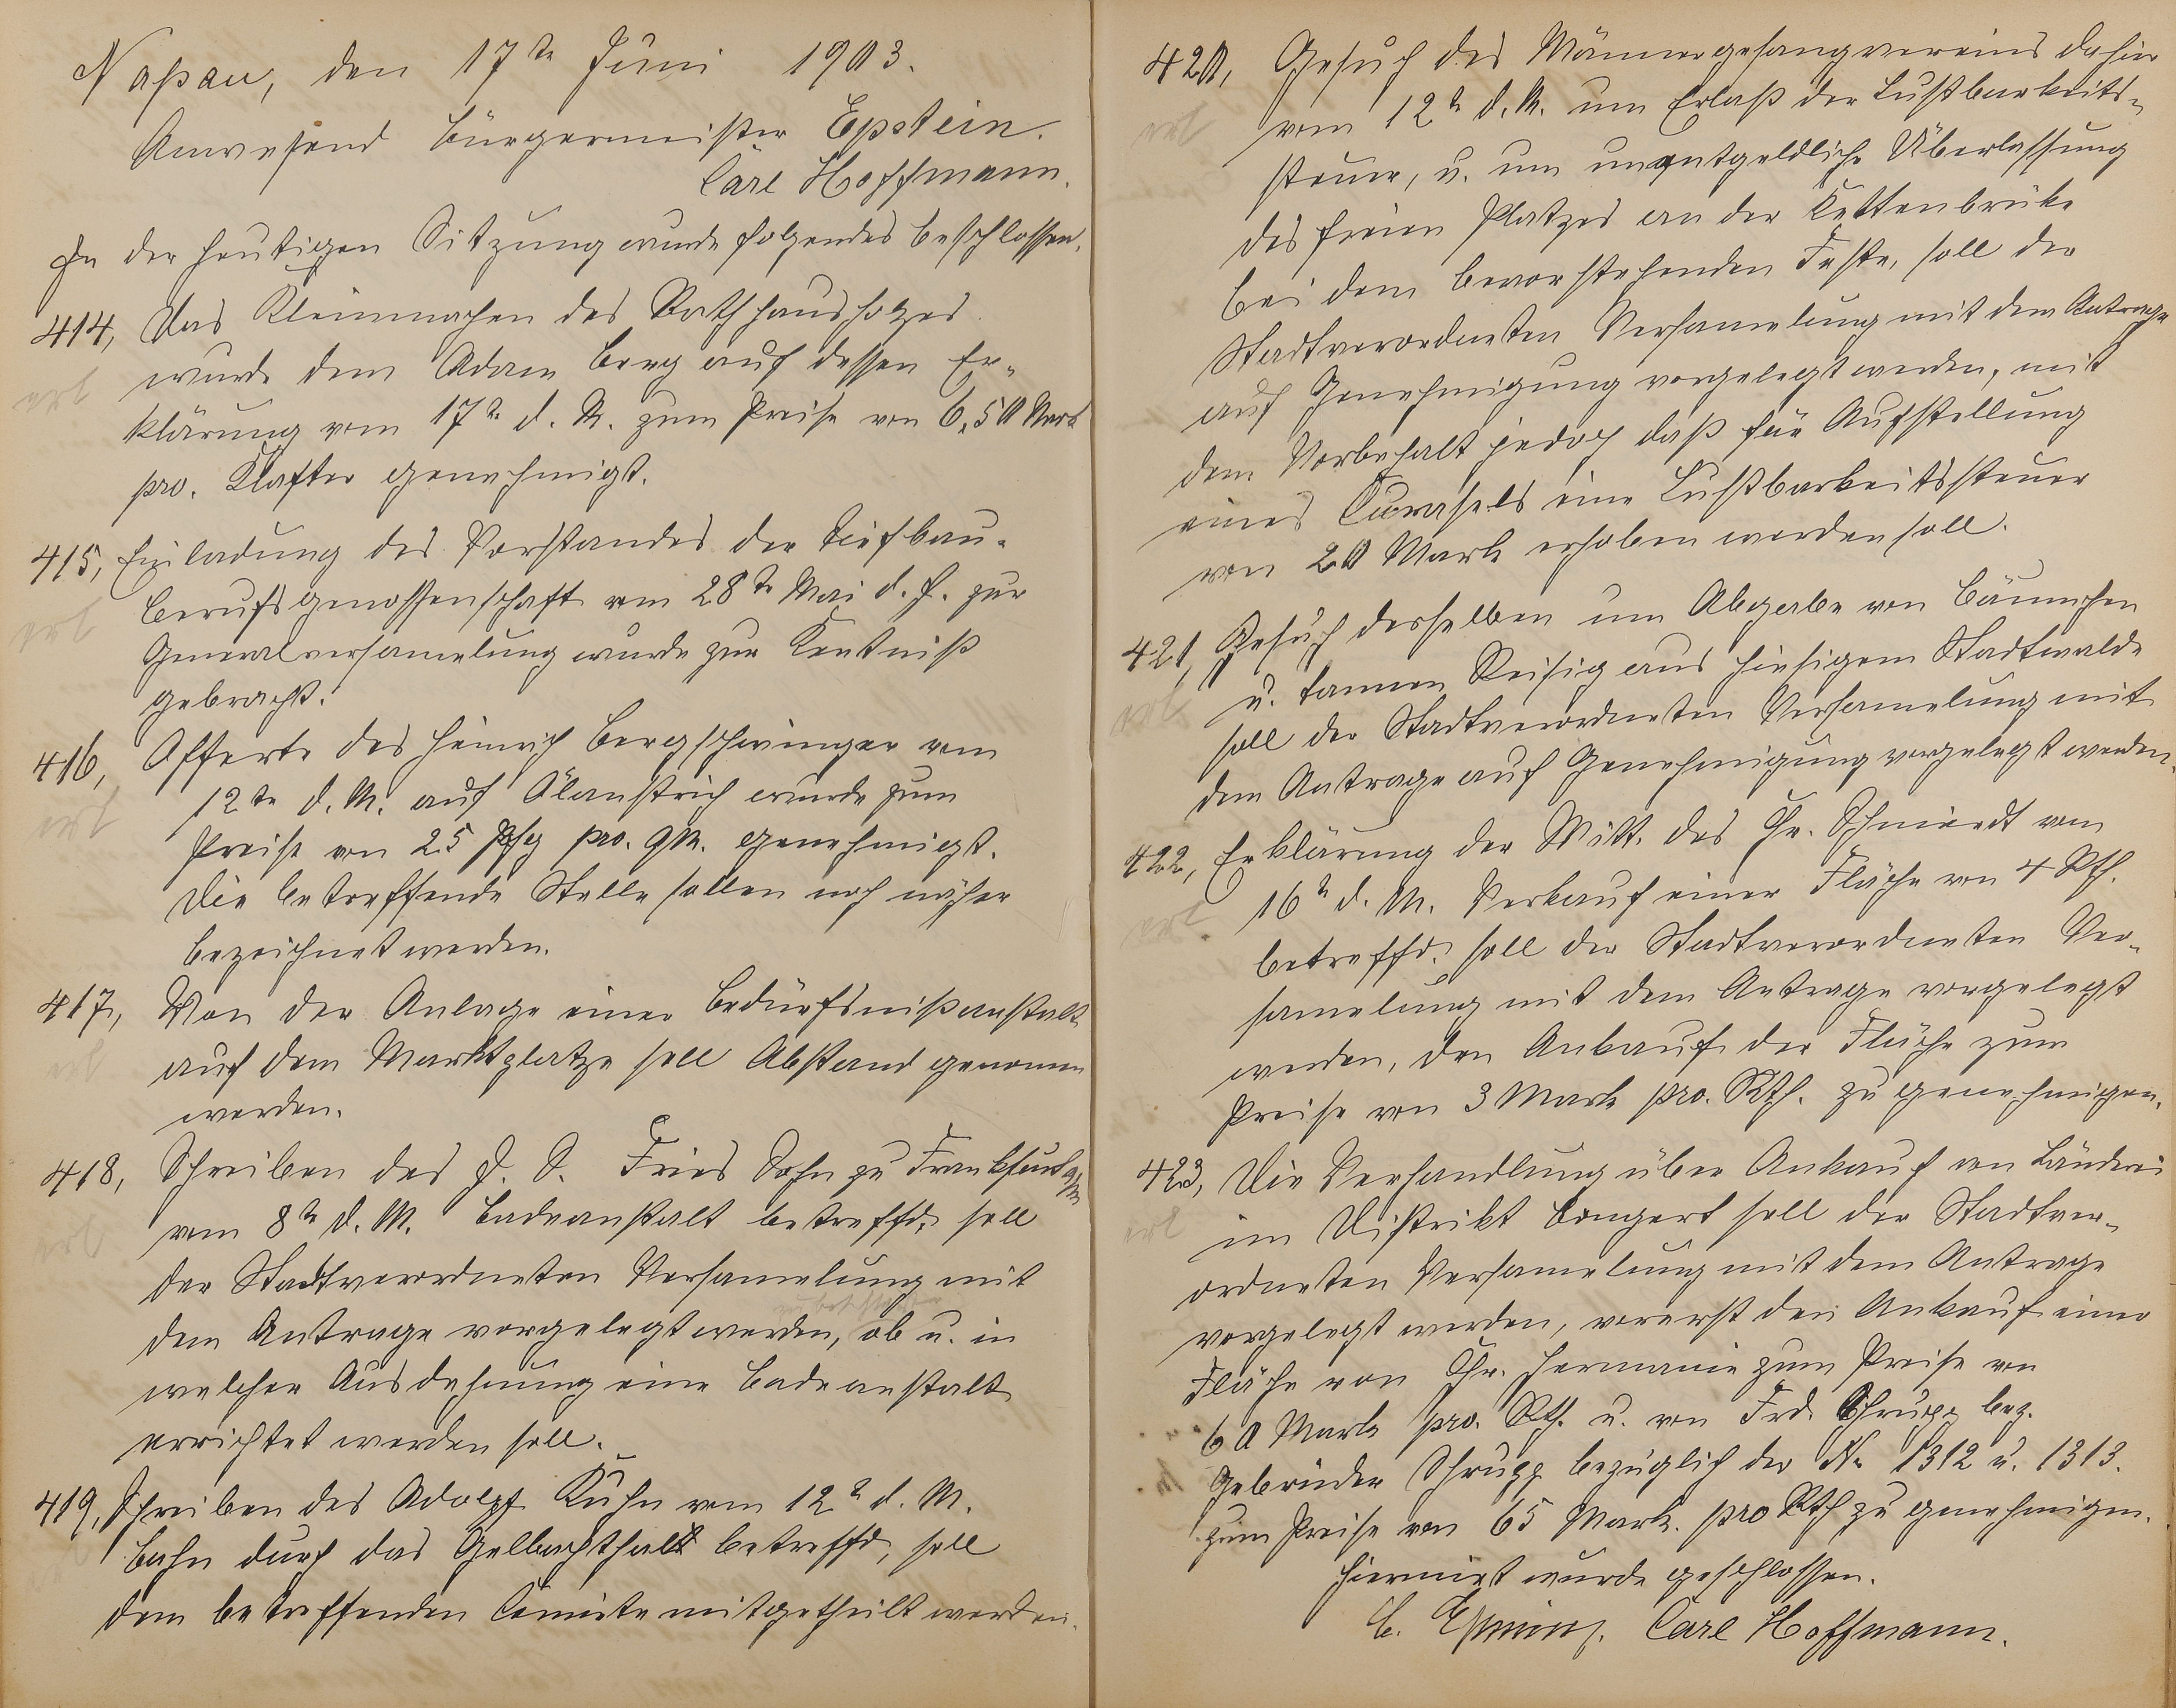 Nassau, den 17te Juni 1903.
Anwesend Bürgermeister Epstein.
Carl Hoffmann.
In der heutigen Sitzung wurde folgendes beschlossen.
414, Das Kleinmachen des Rathhausholzes
erl
wurde dem Adam Berg auf dessen Er-
klärung vom 17te d. M. zum Preise von 6,50 Mark
pro. Klafter genehmigt.
415, Einladung des Vorstandes der Tiefbau-
erl
berufsgenossenschaft vom 28te Mai d. J. zur
Generalversamelung wurde zur Kentniß
gebracht.
416, Offerte des Heinrich Bergschwinger vom
erl
12te d. M. auf Ölanstrich wurde zum
Preise von 25 Pfg pro. qm. genehmigt.
Die betreffende Stelle sollen noch näher
bezeichnet werden.
417, Von der Anlage einer Bedürfnißanstalt
erl
auf dem Marktplatze soll Abstand genomen
werden.
418, Schreiben des J. S. Fries Sohn zu Frankfurt a/M
erl
vom 8te d. M. Badeanstalt betreffd. soll
der Stadtverordneten Versamelung mit
dem Antrage vorgelegt werden, ob u. in
welcher Ausdehnung eine Badeanstalt
errichtet werden soll.
419, Schreiben des Adolph Kuhn vom 12te d. M.
Bahn durch das Gelbachthal betreffd, soll
dem betreffenden Comite mitgetheilt werden.
420, Gesuch des Männergesangvereins dahier
erl
vom 12te d. M. um Erlaß der Lustbarkeits-
steuer, u. um unentgeldliche Überlassung
des freien Platzes an der Kettenbrüke
bei dem bevorstehenden Feste, soll der
Stadtverordneten Versamelung mit dem Antrage
auf Genehmigung vorgelegt werden, mit
dem Vorbehalt jedoch daß für Aufstellung
eines Curasels eine Lustbarkeitssteuer
von 20 Mark erhoben werden soll.
421, Gesuch desselben um Abgabe von Bäumchen
erl
u. Tannen Reisig aus hiesigem Stadtwalde
soll der Stadtverordneten Versamelung mit
dem Antrage auf Genehmigung vorgelegt werden.
422, Erklärung der Witt. des Chr. Schmiedt vom
erl
16te d. M. Verkauf einer Fläche von 4 Rth.
betreffd. soll der Stadtverordneten Ver-
samelung mit dem Antrage vorgelegt
werden, den Ankauf der Fläche zum
Preise von 3 Mark pro. Rth. zu genehmigen.
423, Die Verhandlung über Ankauf von Länderei
erl
im Distrikt Bongert soll der Stadtver-
ordneten Versamelung mit dem Antrage
vorgelegt werden, vorerst den Ankauf einer
Fläche von Chr. Hermanie zum Preise von
60 Mark pro. Rth. u. von Frd. Schrupp bez.
Gebrüder Schrupp bezüglich der No 1312 u. 1313.
zum Preise von 65 Mark. pro Rth zu genehmigen.
Hiermit wurde geschlossen.
Carl Hoffmann.